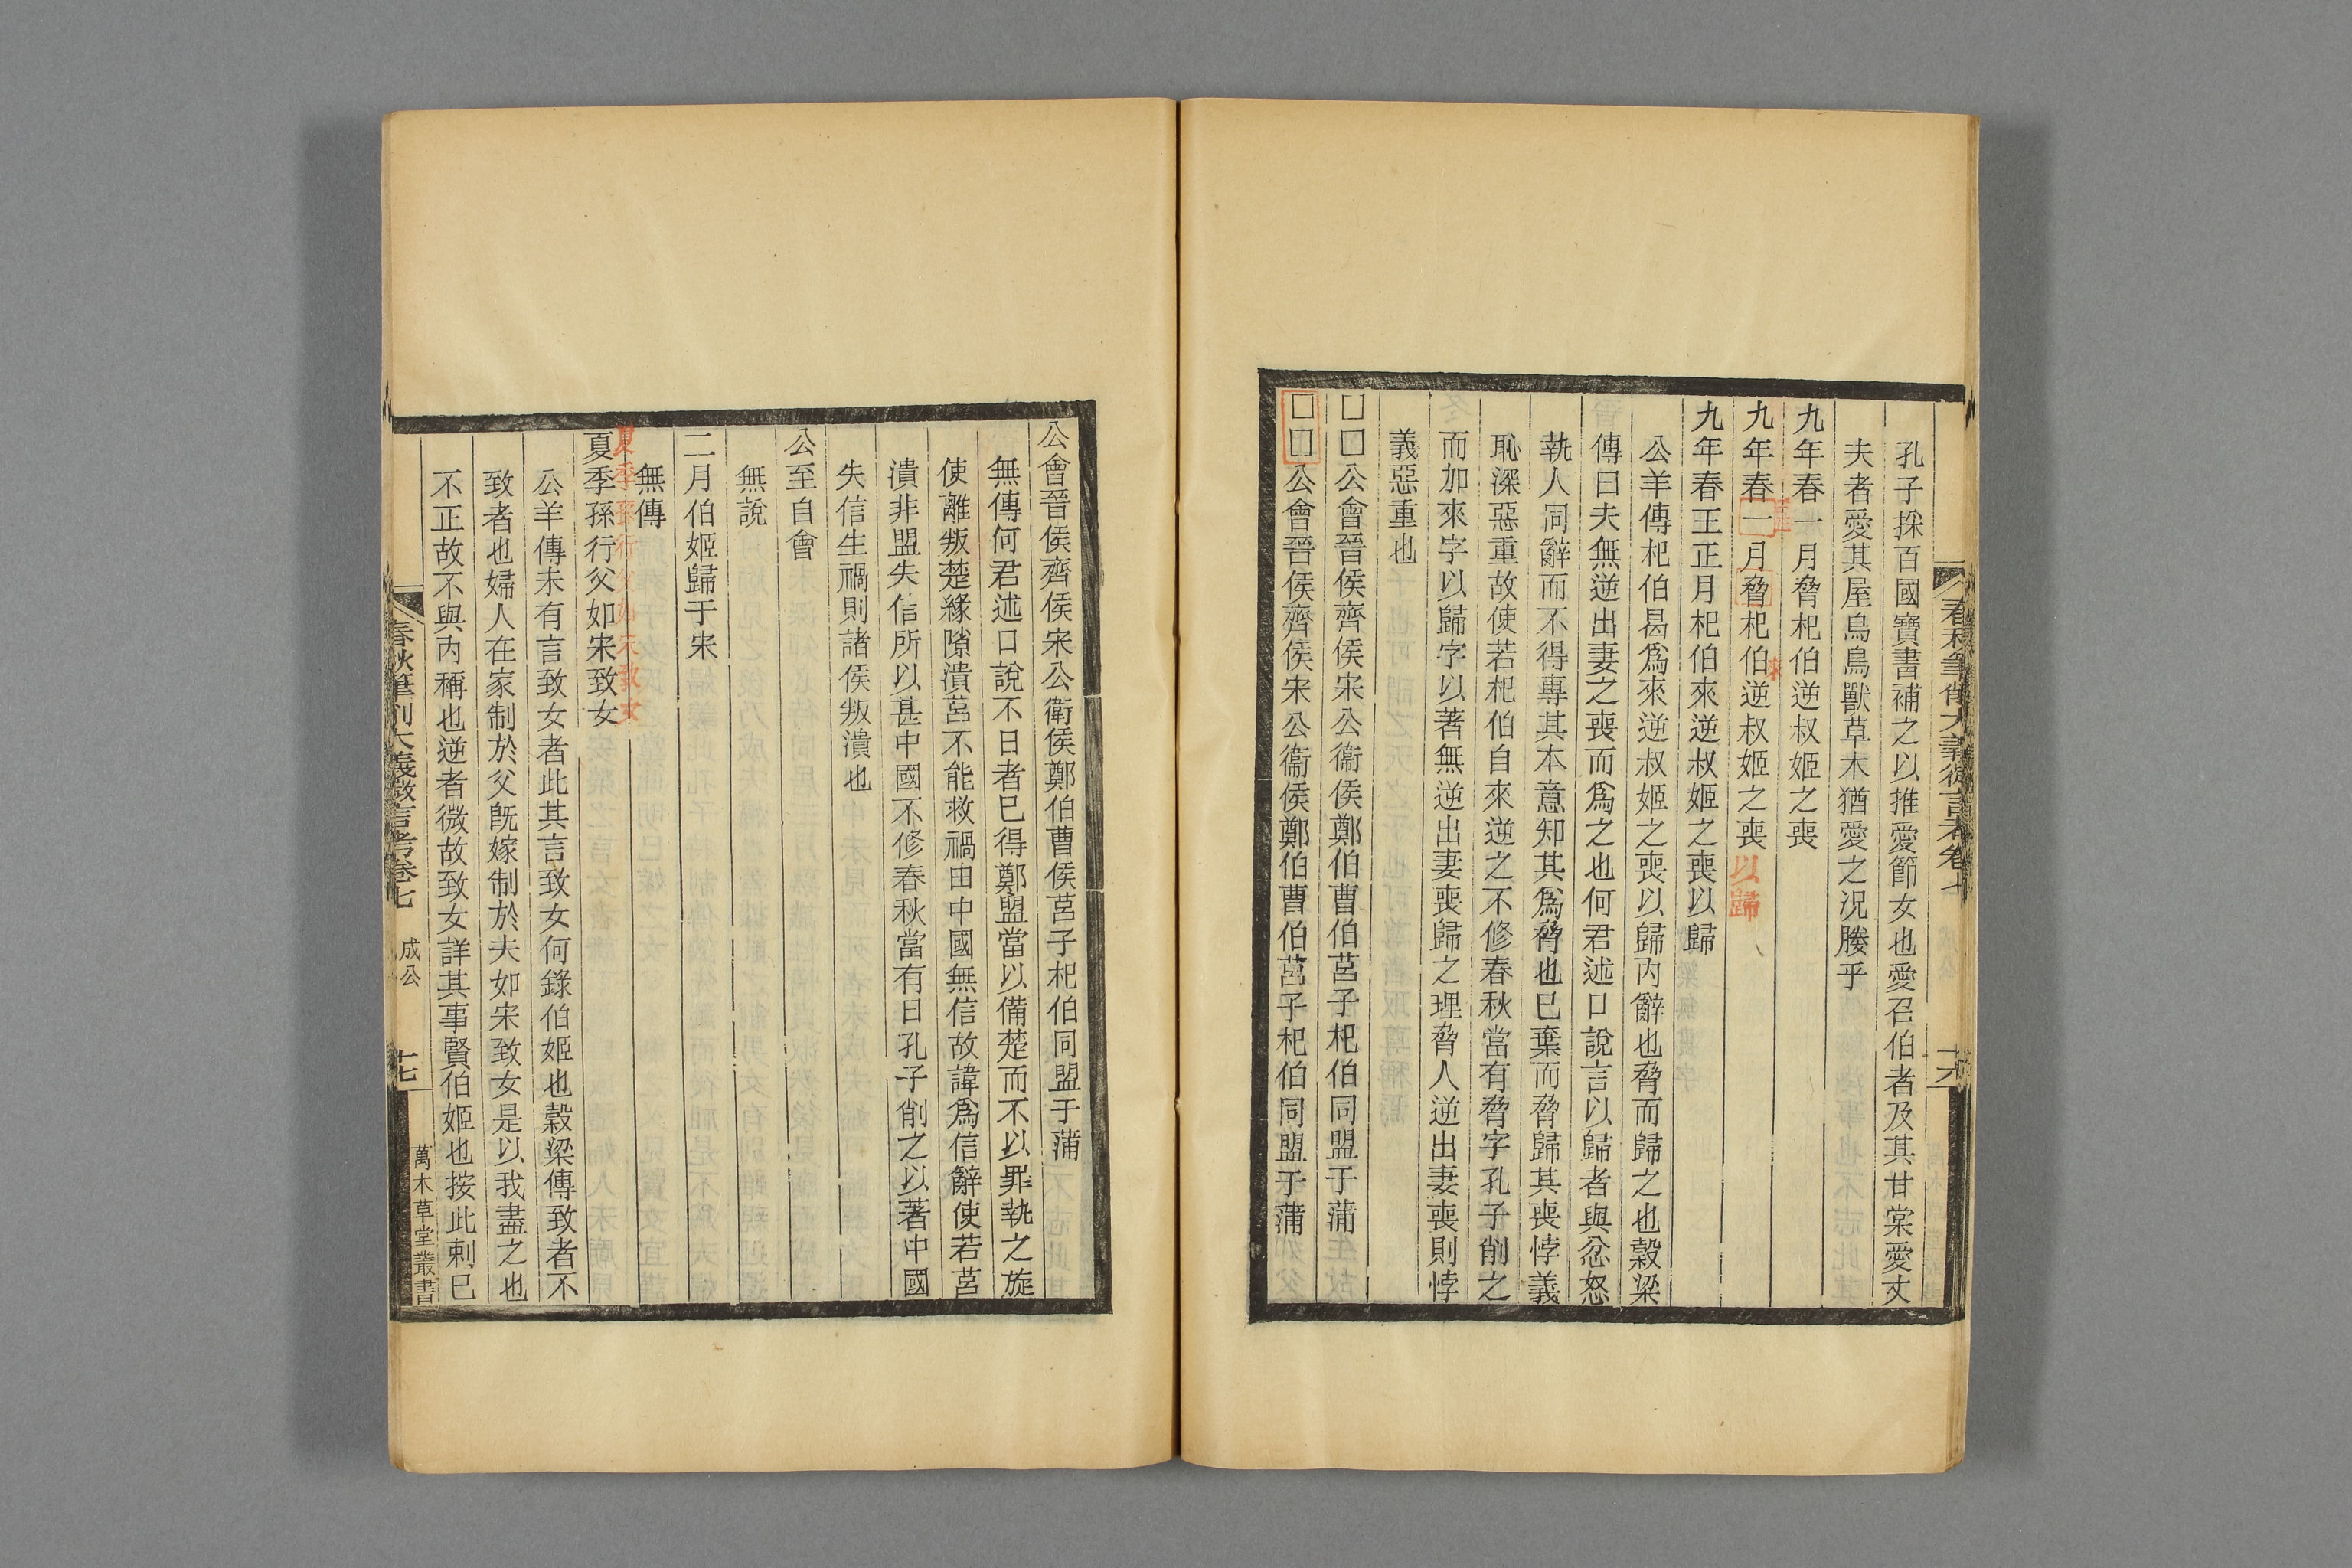 孔子採百國寶書補之以推愛節女也愛召伯者及其甘棠愛丈
夫者愛其屋烏鳥獸草木猶愛之況媵乎
九年春一月脅杞伯逆叔姬之喪
九年春一月脅杞伯逆叔姬之喪以歸
王正
來
九年春王正月杞伯來逆叔姬之喪以歸
公羊傳杞伯曷爲來逆叔姬之喪以歸內辭也脅而歸之也穀梁
傳曰夫無逆出妻之喪而爲之也何君述口說言以歸者與忿怒
執人同辭而不得專其本意知其爲脅也已棄而脅歸其喪悖義
恥深惡重故使若杞伯自來逆之不修春秋當有脅字孔子削之
而加來字以歸字以著無逆出妻喪歸之理脅人逆出妻喪則悖
義惡重也
□□公會晉侯齊侯宋公衞侯鄭伯曹伯莒子杞伯同盟于蒲
□□公會晉侯齊侯宋公衞侯鄭伯曹伯莒子杞伯同盟于蒲
春秋筆削大義微言考卷七
十六
公會晉侯齊侯宋公衛侯鄭伯曹侯莒子杞伯同盟于蒲
無傳何君述口說不日者已得鄭盟當以備楚而不以罪執之旋
使離叛楚緣隙潰莒不能救禍由中國無信故諱爲信辭使若莒
潰非盟失信所以甚中國不修春秋當有日孔子削之以著中國
失信生禍則諸侯叛潰也
公至自會
無說
二月伯姬歸于宋
無傳
夏季孫行父如宋致女
夏季孫行父如宋致女
公羊傳未有言致女者此其言致女何錄伯姬也穀梁傳致者不
致者也婦人在家制於父旣嫁制於夫如宋致女是以我盡之也
不正故不與內稱也逆者微故致女詳其事賢伯姬也按此刺已
春秋筆削大義微言考卷七
成公
十七
萬木草堂叢書